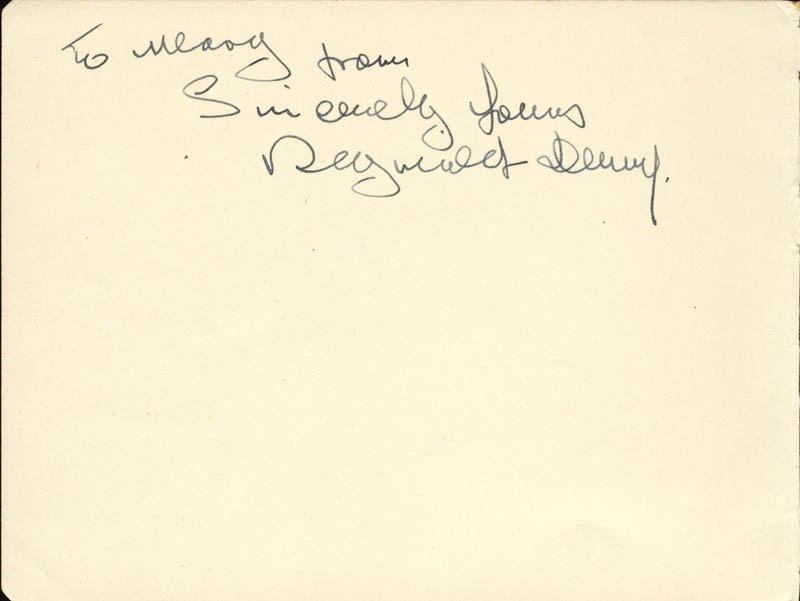 To Mary from
Sincerely Yours
Reginald Denny.